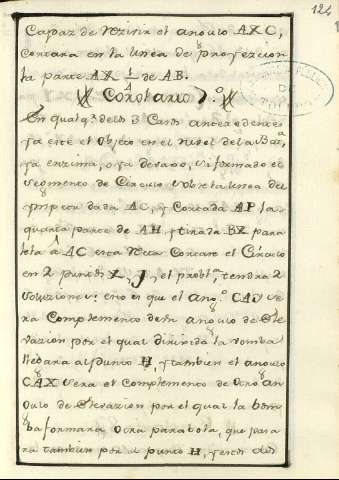 124
Capaz de rezivir el angulo AXC,
cortara en la linea de proyeczion
la parte AX 1/4 de AB.
Corolario 7.º
En qualqª. de los 3 Casos antezedentes
ya este el Objeto en el nivel de la Batª
ya enzima, o ya devajo, si formado el
segmento de Circulo sobre la linea del
impetu dada AC, y Cortada AP la
quarta parte de AH, y tirada BX para
lela â AC esta recta Cortare el Circulo
en 2 puntos X, J, el problª, tendra 2
soluziones: esto es que el angº. CAJ se
ra Complemento de un angulo de Ele
vazion por el qual dirixida la vomba
llegara al punto H, y tambien el angulo
CAX sera el Complemento de otro an
gulo de Elevazion por el qual la bom
ba formara otra parabola, que pasa
ra tambien por el punto H, y estos dos